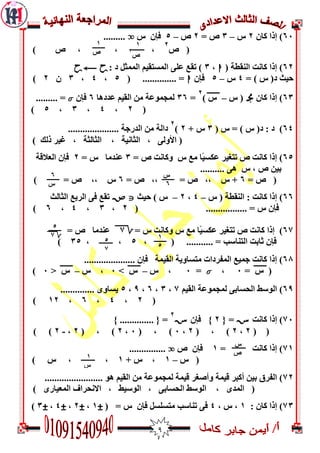 للصف الثالث الاعدادى
المراجعة النهائية
٦٠) إذا كان ٢ س – ٣ ص = ٢ ص – ٥ فإن س ∝ .........
( ص٢ ، ١/ص٢ ، ١/ص ، ص )
٦١) إذا كانت النقطة ( ا ، ٣ ) تقع على المستقيم الممثل د : ح ← ح
حيث د( س ) = ٤ س – ٥ فإن ا = .............. ( ٥ ، ٤ ، ٣ ، ٢ )
٦٢) إذا كان مجـ ( س – س̄ )٢ = ٣٦ لمجموعة من القيم عددها ٩ فإن σ = .........
( ٢ ، ٤ ، ٣ ، ٥ )
٦٤) د : د( س ) = س ( ٣ س + ٢ )٢ دالة من الدرجة .....................
( الأولى ، الثانية ، الثالثة ، غير ذلك )
٦٥) إذا كانت ص تتغير عكسيًا مع س وكانت ص = ٣ عندما س = ٢ فإن العلاقة
بين ص ، س هى ..............
( ص = ٦ + س ،، ص = س/٦ ،، ص = ٦ س ،، ص = ٦/س )
٦٦) إذا كانت : النقطة ( س – ٤ ، ٢ – س ) حيث س ∈ ص تقع فى الربع الثالث
فإن س = ................ ( ٢ ، ٣ ، ٤ ، ٦ )
٦٧) إذا كانت ص تتغير عكسيًا مع س وكانت س = √٧ عندما ص = ٥/√٧
فإن ثابت التناسب = ........... ( ١/٥ ، ٥ ، ٥/٧ ، ٣٥ )
٦٨) إذا كانت جميع المفردات متساوية القيمة فإن .....................
( س̄ = ٠ ، σ = ٠ ، س – س̄ > ٠ ، س – س̄ < ٠ )
٦٩) الوسط الحسابى لمجموعة القيم ٧ ، ٣ ، ٦ ، ٩ ، ٥ يساوى ..............
( ٢ ، ٤ ، ٦ ، ١٢ )
٧٠) إذا كانت س = { ٢ } فإن س٢ = { .............. }
( ( ٢ ، ٢ ) ، ( ٠ ، ٢ ) ، ( ٢ ، ٠ ) ، ( ٢ ، -٢ ) )
٧١) إذا كانت س/ص = ١ فإن ص ∝ ...............
( س – ١ ، س + ١ ، ١/س ، س )
٧٢) الفرق بين أكبر قيمة وأصغر قيمة لمجموعة من القيم هو ........................
( المدى ، الوسط الحسابى ، الوسيط ، الانحراف المعيارى )
٧٣) إذا كان : ١ ، س ، ٤ فى تناسب متسلسل فإن س = ( ±١ ، ±٢ ، ±٤ ، ±٣ )
أ/ أيمن جابر كامل
٩
01091540940